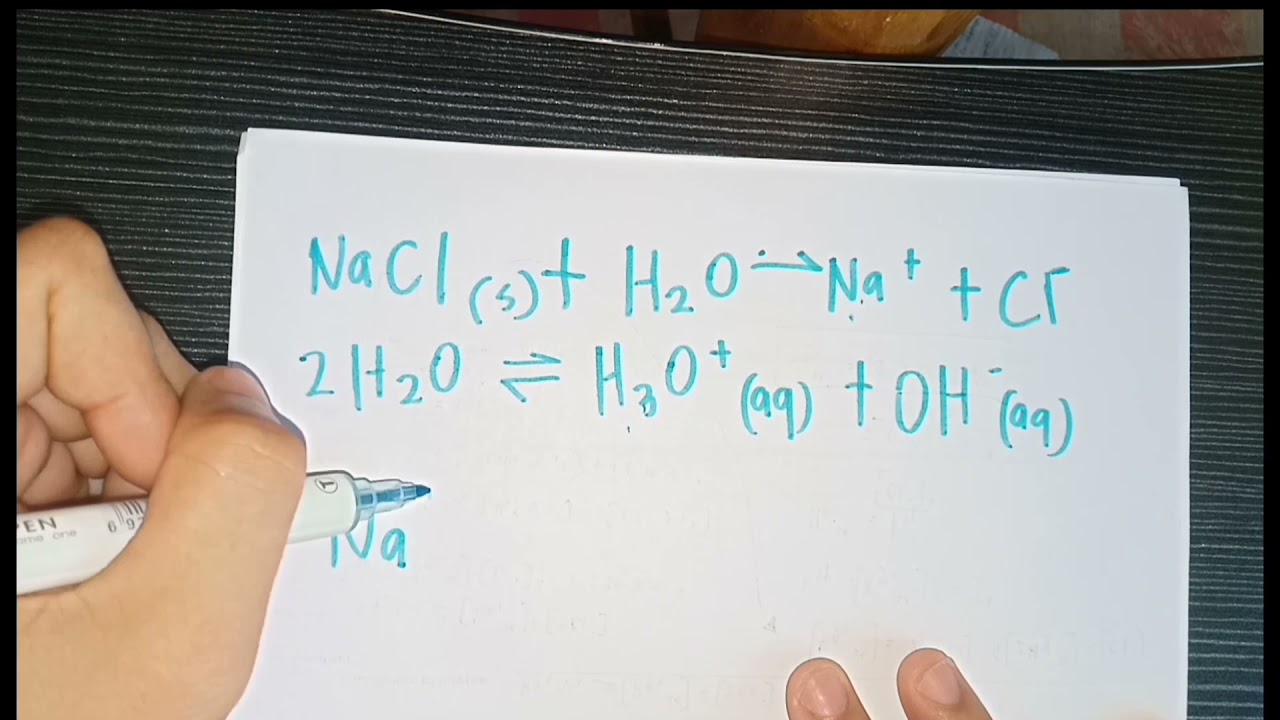 NaCl (s) + H₂O → Na⁺ + Cl⁻
2H₂O ⇌ H₃O⁺ (aq) + OH⁻ (aq)
Na
PEN
ome one